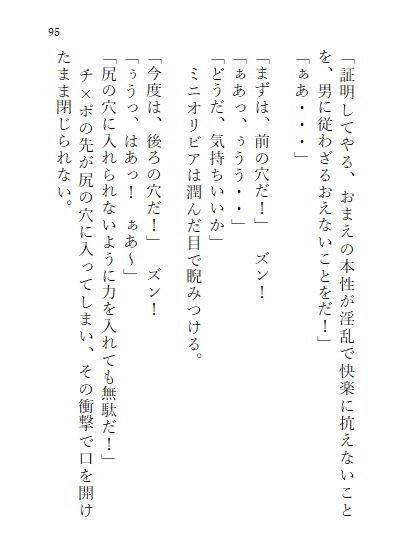 95
「証明してやる、おまえの本性が淫乱で快楽に抗えないこと
を、男に従わざるおえないことをだ！」
「ぁあ・・・」
「まずは、前の穴だ！」　ズン！
「ぁあっ、ぅうう・・」
「どうだ、気持ちいいか」
ミニオリビアは潤んだ目で睨みつける。
「今度は、後ろの穴だ！」　ズン！
「ぅうっ、はあっ！　ぁあ～」
「尻の穴に入れられないように力を入れても無駄だ！」
チ×ポの先が尻の穴に入ってしまい、その衝撃で口を開け
たまま閉じられない。